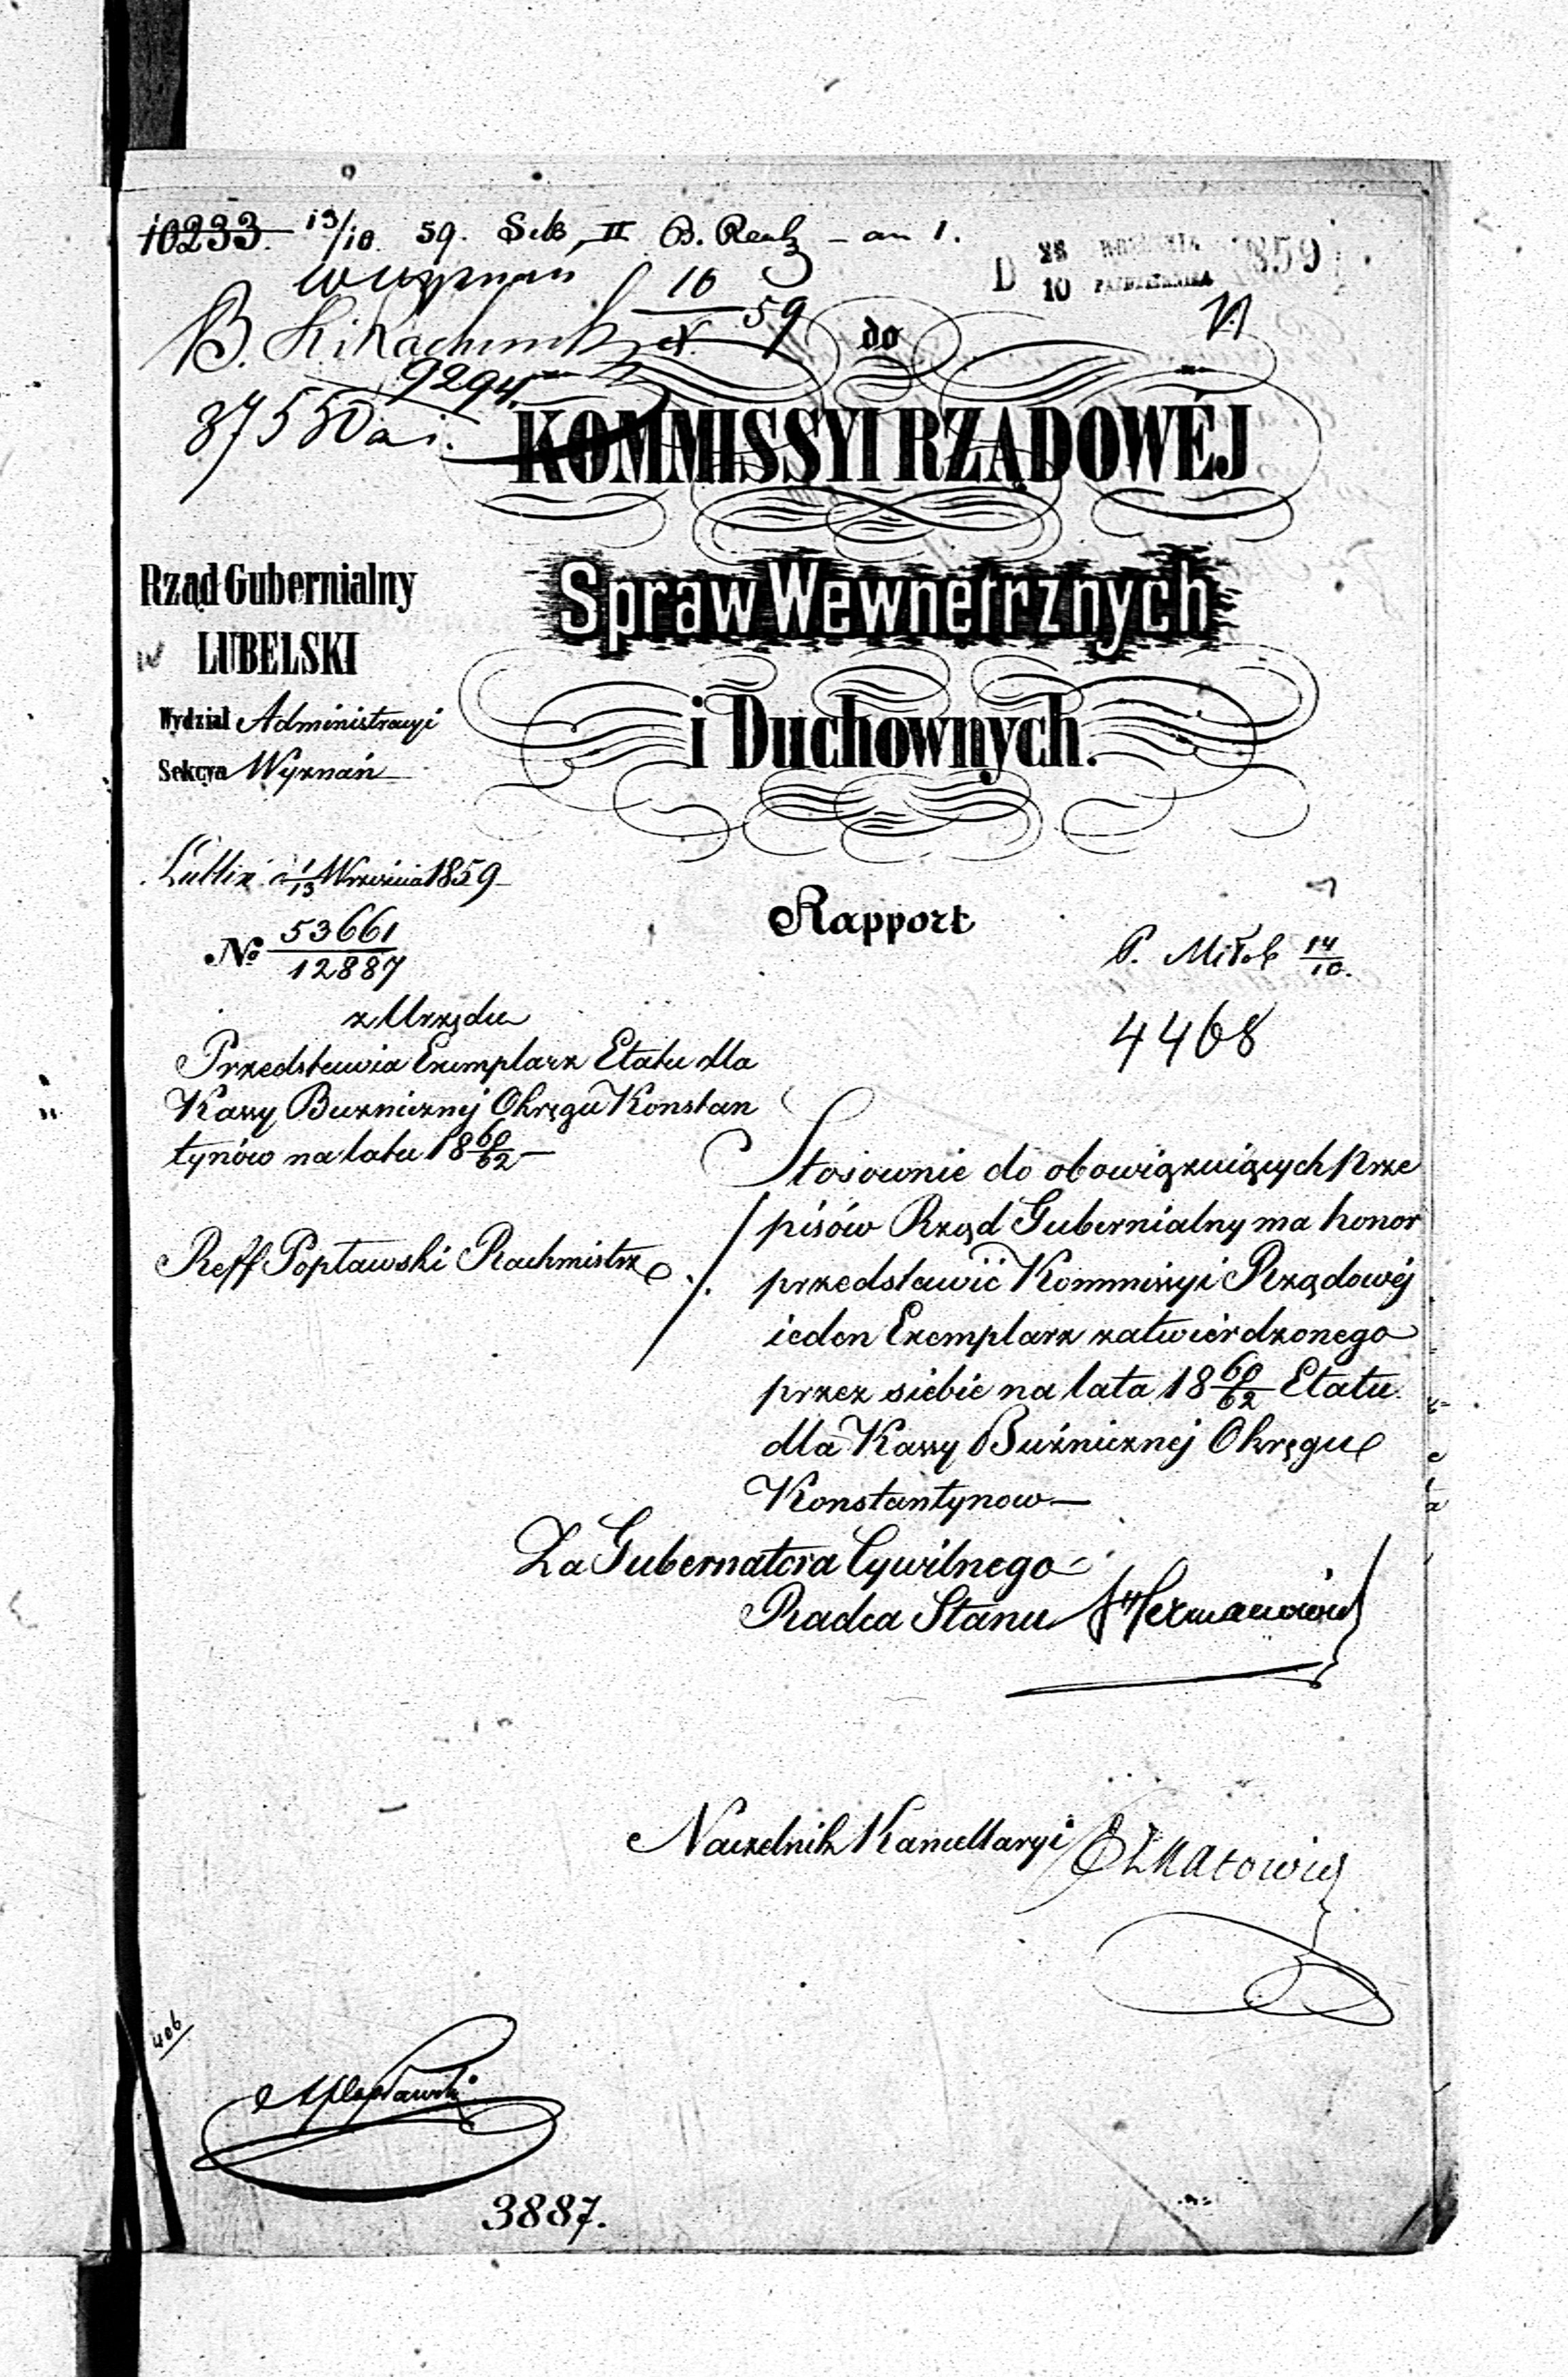 10233. 13/10 59. Sek, II B. Realz - an 1.
D 28 WRZEŚNIA 1859
10 PAŹDZIERNIKA
w wyznań
10
X 59
B.
9294
87550 a i.
do
KOMMISSYI RZĄDOWÉJ
Spraw Wewnętrznych
i Duchownych.
Rząd Gubernialny
LUBELSKI
Wydział Administracyi
Sekcya Wyznań
Lublin d 1/13 Września 1859
No 53661
12887
z Urzędu
Przedstawia Exemplarz Etatu dla
Kassy Bużnicznej Okręgu Konstan
tynów na lata 18 60/62
Reff Popławski Rachmistrz
Rapport
P. Miłob 14/10.
4468
Stosownie do obowiązuiących prze
pisów Rząd Gubernialny ma honor
przedstawić Kommissyi Rządowéj
ieden Exemplarz zatwierdzonego
przez siebie na lata 18 60/62 Etatu
dla Kassy Bużnicznej Okręgu
Konstantynow
Za Gubernatora Cywilnego
Radca Stanu
Naczelnik Kancellaryi
406
3887.